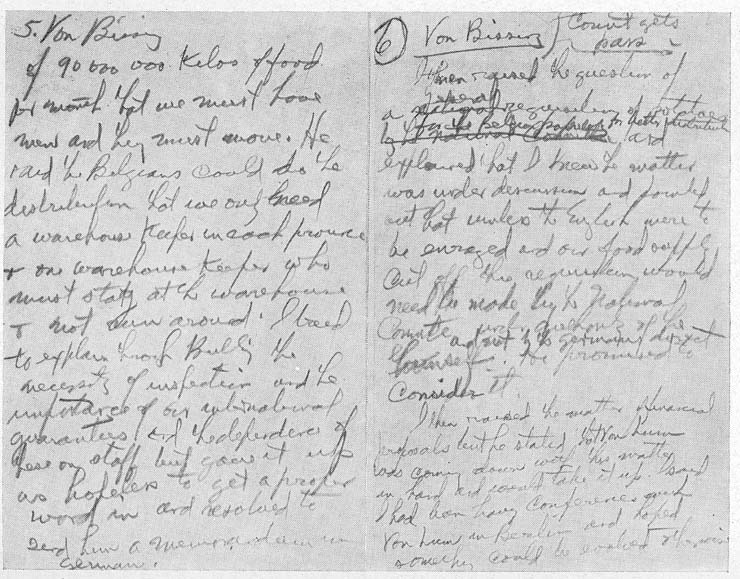 5. Von Bissing
of 90 000 000 Kilos of food
per month that we must have
men and they must move. He
said the Belgians could do the
distribution that we only need
a warehouse keeper in each province
+ one warehouse keeper who
must stay at the warehouse
+ not run around. I tried
to explain through Bulle the
necessity of inspection and the
importance of our international
guarantees and the dependence of
these on staff but gave it up
as hopeless to get a proper
word in and resolved to
send him a memorandum in
German.
6 Von Bissing Count gets
pass
I then raised the question of
general
a requisition of potatoes
for the Belgian population to
and
explained that I knew the matter
was under discussion and pointed
out that unless the English were to
be enraged and our food supply
cut off this requisition would
need be made by the National
Comite under authority of the
and not by the Germans direct
He promised to
Consider it
I then raised the matter financial
proposals but he stated that Von Lumm
was coming down with this matter
in hand and would take it up. I said
I had been having conferences with
Von Lumm in Berlin and hoped
something could be evolved otherwise